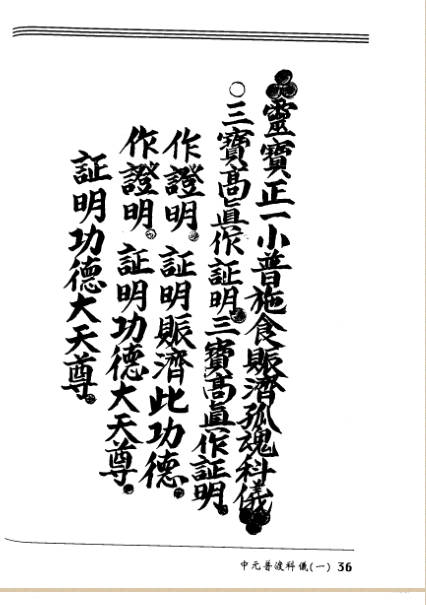 靈寶正一小普施食賑濟孤魂科儀
○三寶高眞作証明三寶高眞作証明
作證明 証明賑濟此功德
作證明 証明功德大天尊
証明功德大天尊
中元普渡科儀(一) 36